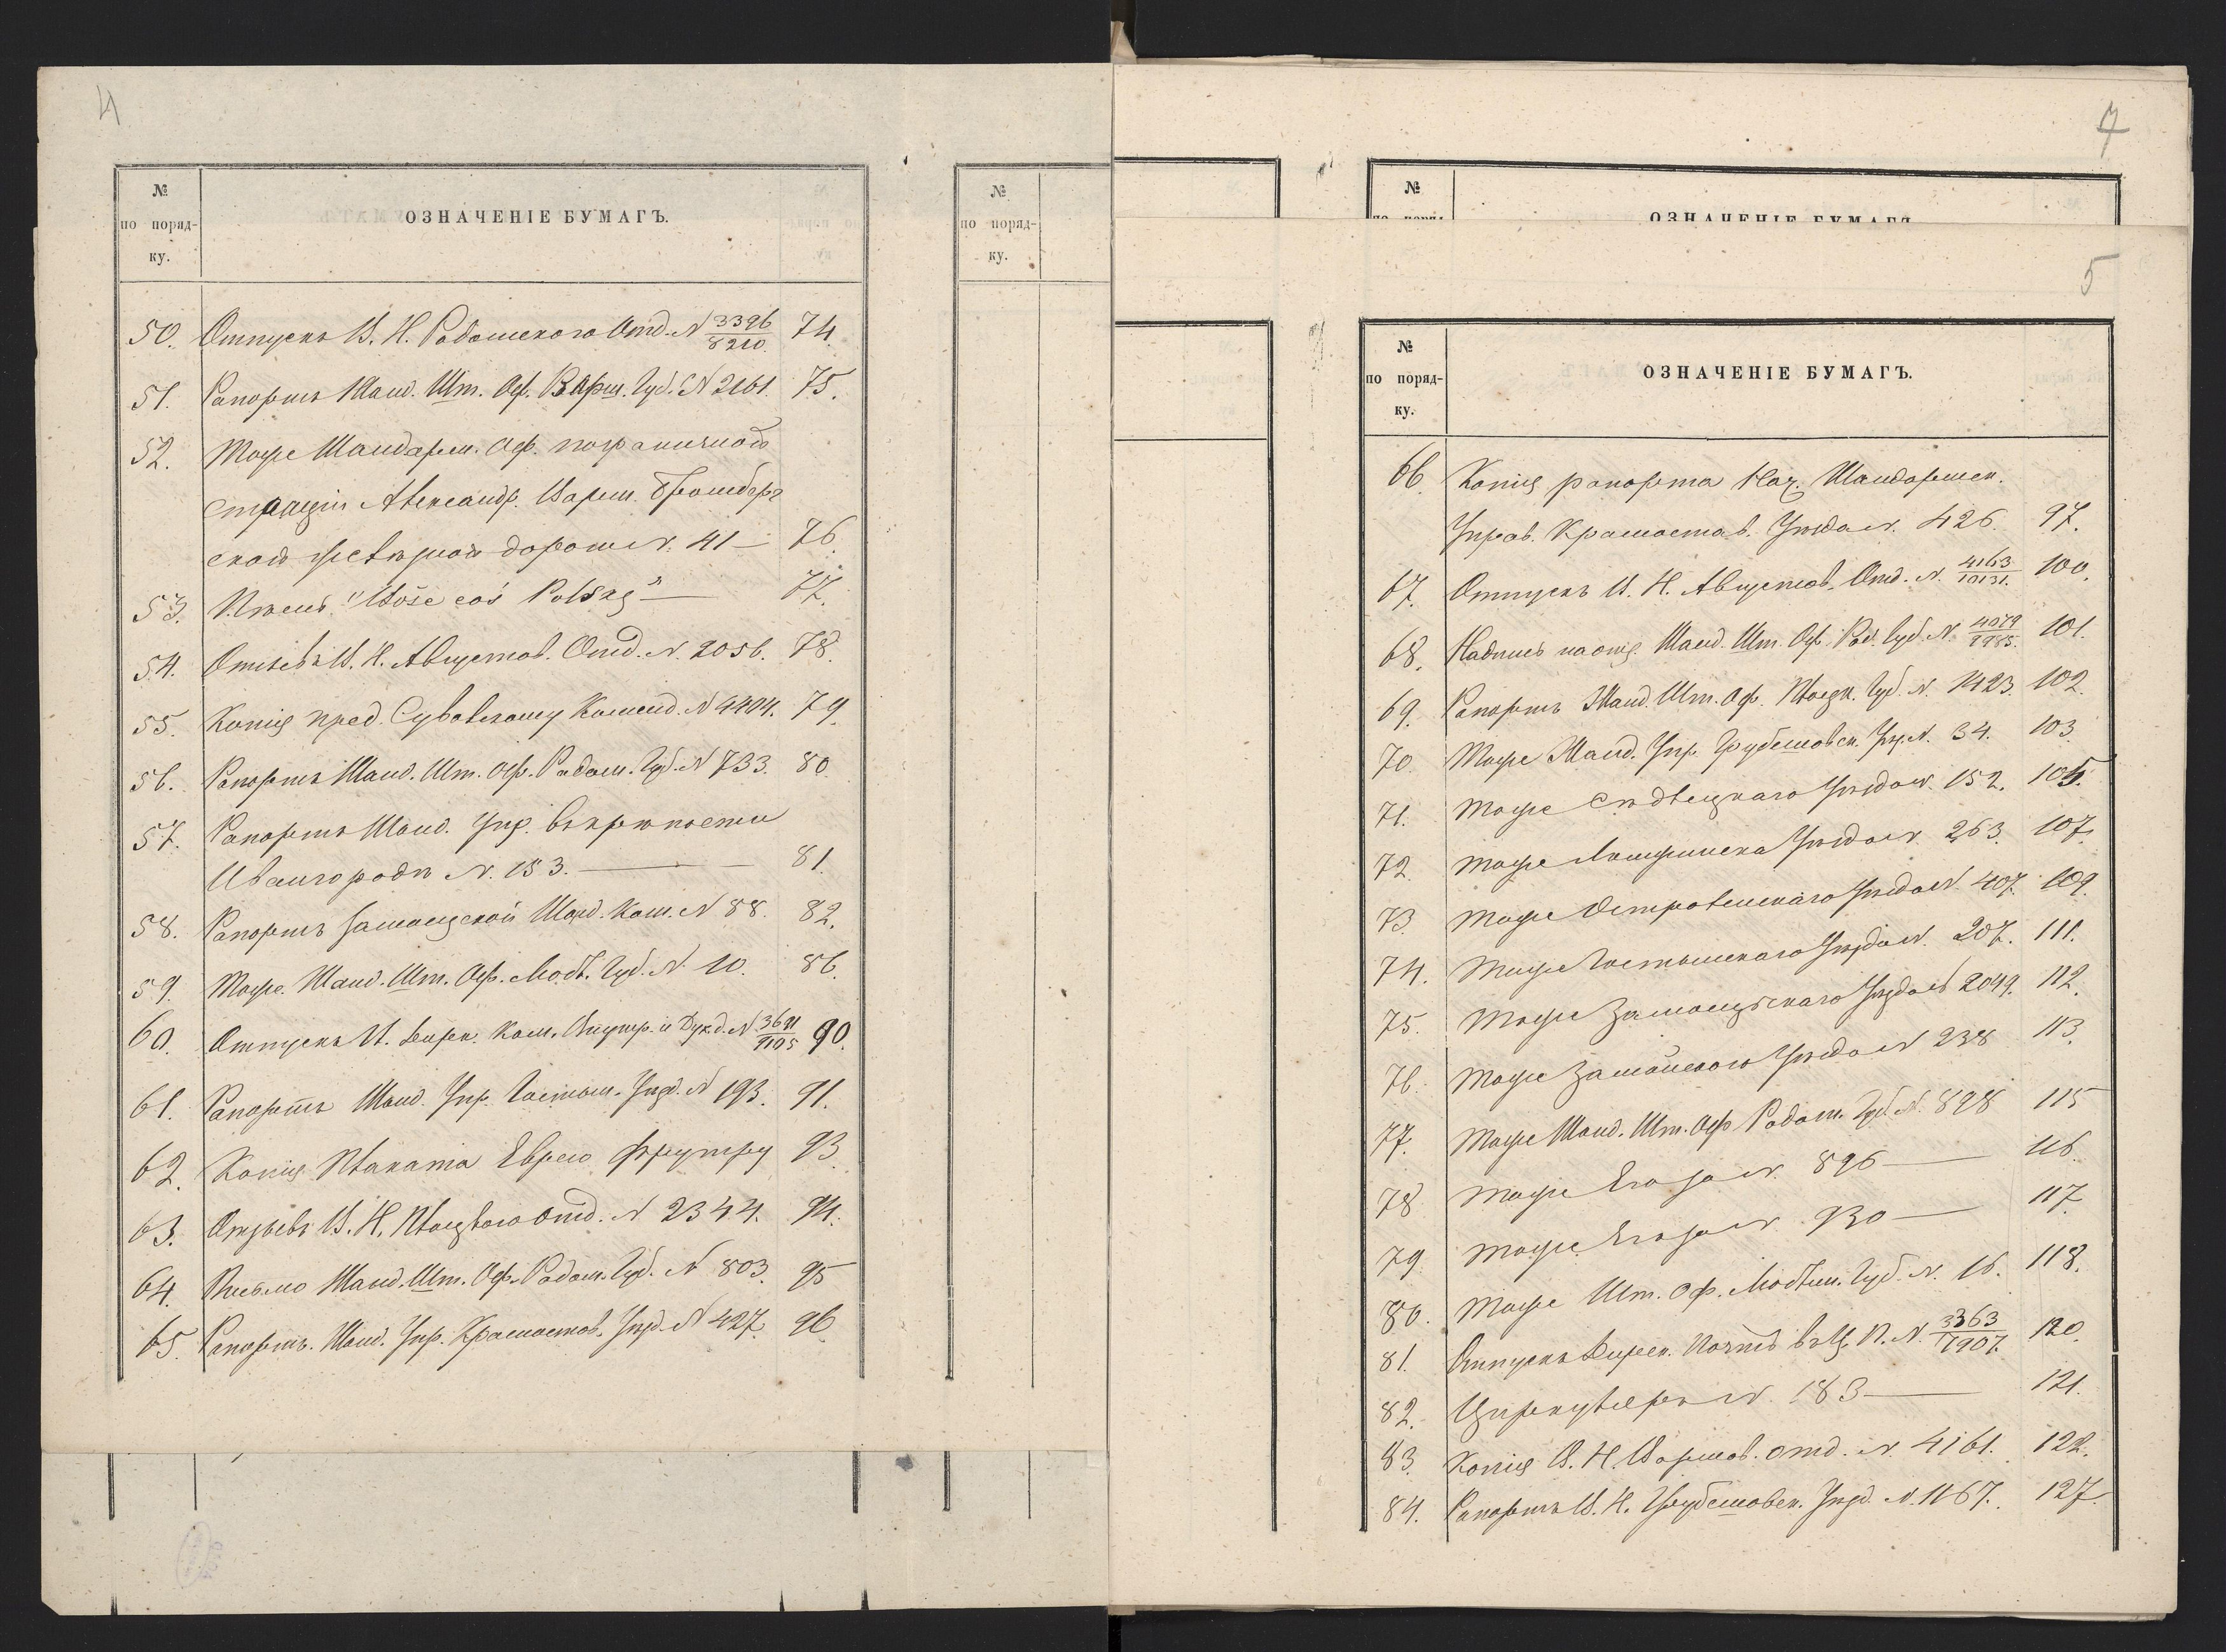 4
№
по поряд-
ку.
ОЗНАЧЕНІЕ БУМАГЪ.
50. Отпускъ В. Н. Радомскаго Отд. N 3396/8210. 74.
51. Рапортъ Жанд. Шт. Оф. Варш. Губ. N 2161. 75.
52. Тоже Жандарм. Оф. пограничной
станціи Александр. Варш. Бромберг
ской желѣзной дороги N. 41 — 76.
53. Пѣснь "Boże coś Polskę" — 77.
54. Отзывъ В. Н. Августов. Отд. N. 2056. 78.
55. Копія пред. Сувалскому Коменд. N 4404. 79.
56. Рапортъ Жанд. Шт. Оф. Радом. Губ. N 733. 80.
57. Рапортъ Жанд. Упр. въ крѣпости
Ивангородѣ N. 153. — 81.
58. Рапортъ Замосцской Жанд. Ком. N 88. 82.
59. Тоже Жанд. Шт. Оф. Любл. Губ. N 10. 86.
60. Отпускъ Г. Дирек. Ком. Внутр. и Дух. д. N 3691/9105 90.
61. Рапортъ Жанд. Упр. Гостын. Уѣзд. N 193. 91.
62. Копія Плаката Еврею 93.
63. Отзывъ В. Н. Плоцкаго Отд. N 2344. 94.
64. Письмо Жанд. Шт. Оф. Радом. Губ. N 803. 95
65. Рапортъ. Жанд. Упр. Красностав. Уѣзд. N 427. 96
№
по поряд-
ку.
7
№
ОЗНАЧЕНІЕ БУМАГЪ
5
№
по поряд-
ку.
ОЗНАЧЕНІЕ БУМАГЪ.
66. Копія рапорта Нач. Жандармск.
Управ. Красностав. Уѣзда N. 426. 97.
67. Отпускъ В. Н. Августов. Отд. N. 4163/10131. 100.
68. Надпись на отц. Жанд. Шт. Оф. Рад. Губ. N. 4079/9985. 101.
69. Рапортъ Жанд. Шт. Оф. Плоцк. Губ. N. 1423. 102.
70. Тоже Жанд. Упр. Грубешовск. Уѣз. N. 34. 103.
71. Тоже Сѣдлецкаго Уѣзда N. 152. 105.
72. Тоже Ломжинска Уѣзда N. 263. 107.
73. Тоже Островскаго Уѣзда N. 407. 109.
74. Тоже Гостынскаго Уѣзда N. 207. 111.
75. Тоже Замосцьскаго Уѣзда N 2049. 112.
76. Тоже Уѣзда N 238 113.
77. Тоже Жанд. Шт. Оф. Радом. Губ. N. 898 115
78. Тоже Егожа N. 896 — 116.
79. Тоже Егожа N. 930 — 117.
80. Тоже Шт. Оф. Люблин. Губ. N. 16. 118.
81. Отпускъ Дирек. Почтъ въ Ц. П. N. 3363/7907. 120.
82. Циркуляръ N. 183 — 121.
83. Копія В. Н. Варшав. отд. N 4161. 122.
84. Рапортъ В. Н. Грубешовск. Уѣзд. N. 1167. 127.